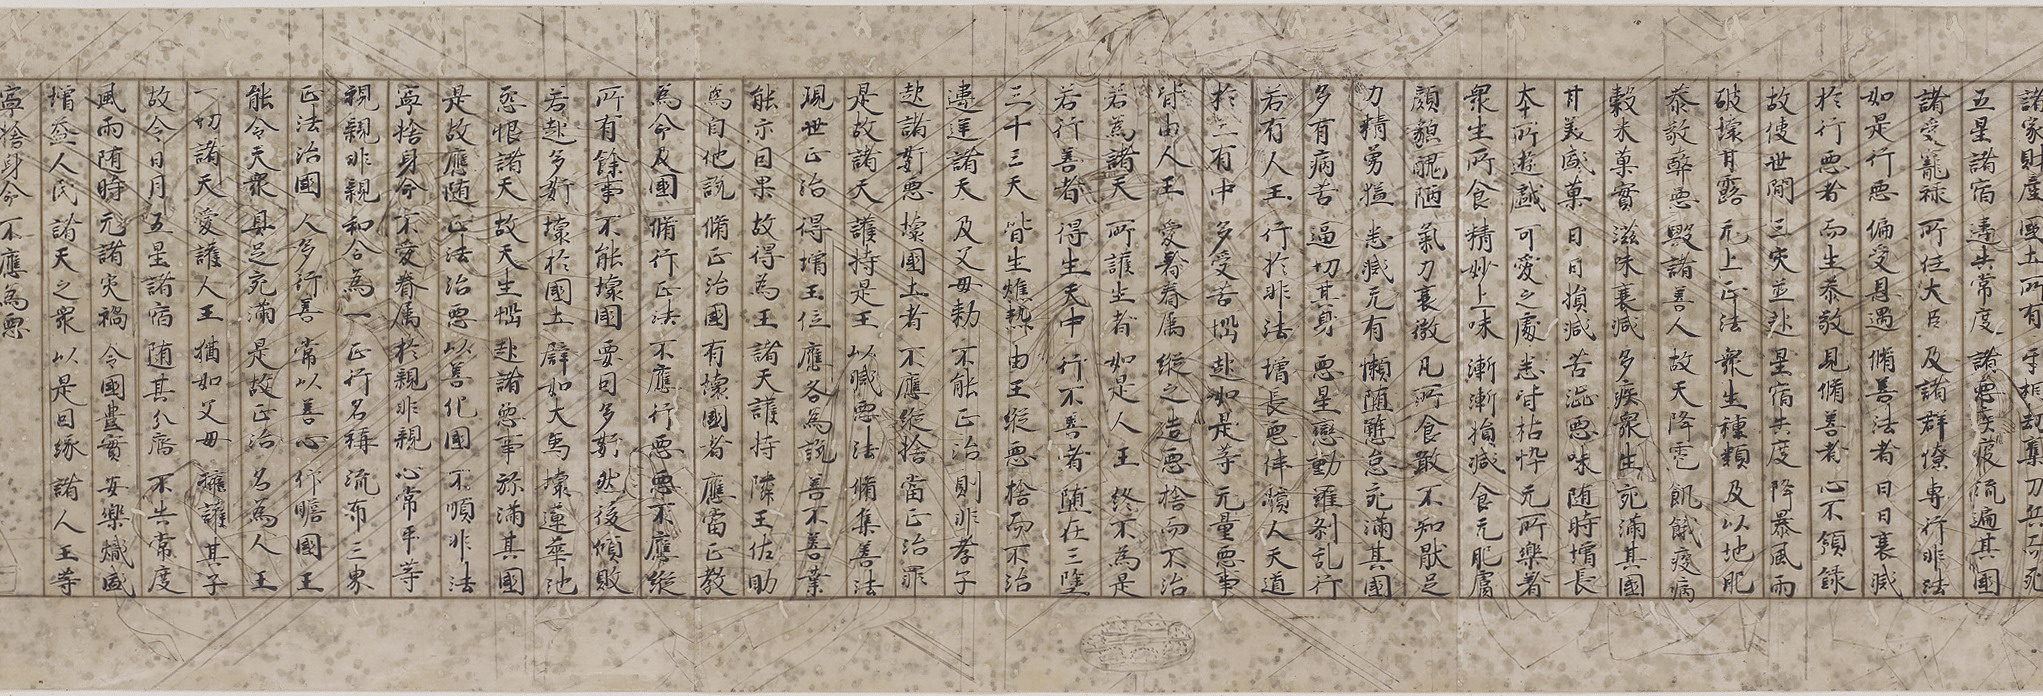 諸家財產 國土所有 手相執集 刀兵而死
五星諸宿 違失常度 諸惡疾疫 流遍其國
諸受寵祿 所任大臣 及諸群僚 專行非法
如是行惡 偏受恩遇 脩善法者 日日衰減
於行惡者 而生恭敬 見脩善者 心不顧錄
故使世間 三灾並起 星宿失度 降暴風雨
破壞甘露 无上正法 衆生種類 及以地肥
恭敬弊惡 毀諸善人 故天降雹 飢餓疫病
穀米菓實 滋味衰減 多疾衆生 充滿其國
甘美盛菓 日日損減 苦澁惡味 随時增長
本所遊戲 可愛之處 悉皆枯悴 无所樂著
衆生所食 精妙上味 漸漸損減 食无肥膚
顏貌醜陋 氣力衰微 凡所食噉 不知猒足
力精勇猛 悉減无有 懶墮懈怠 充滿其國
多有病苦 逼切其身 惡星變動 羅刹乱行
若有人王 行於非法 增長惡伴 損人天道
於三有中 多受苦惱 起如是等 无量惡事
皆由人王 愛著眷属 縱之造惡 捨而不治
若為諸天 所護生者 如是人王 終不為是
若行善者 得生天中 行不善者 随在三塗
三十三天 皆生燋熱 由王縱惡 捨而不治
違逆諸天 及父母勑 不能正治 則非孝子
起諸姧惡 壞國土者 不應縱捨 當正治罪
是故諸天 護持是王 以滅惡法 脩集善法
現世正治 得增王位 應各為說 善不善業
能示因果 故得為王 諸天護持 隣王佐助
為自他說 脩正治國 有壞國者 應當正教
為命及國 脩行正法 不應行惡 惡不應縱
所有餘事 不能壞國 要因多姧 然後傾敗
若起多姧 壞於國土 譬如大馬 壞蓮華池
惡恨諸天 故天生惱 起諸惡事 弥滿其國
是故應随 正法治惡 以善化國 不順非法
寧捨身命 不愛眷属 於親非親 心常平等
視親非親 和合為一 正行名稱 流布三界
正法治國 人多行善 常以善心 仰瞻國王
能令天衆 具足充滿 是故正治 名為人王
一切諸天 愛護人王 猶如父母 擁護其子
故令日月 五星諸宿 随其分齊 不失常度
風雨随時 无諸灾禍 令國豊實 安樂熾盛
增益人民 諸天之衆 以是因緣 諸人王等
寧捨身命 不應為惡